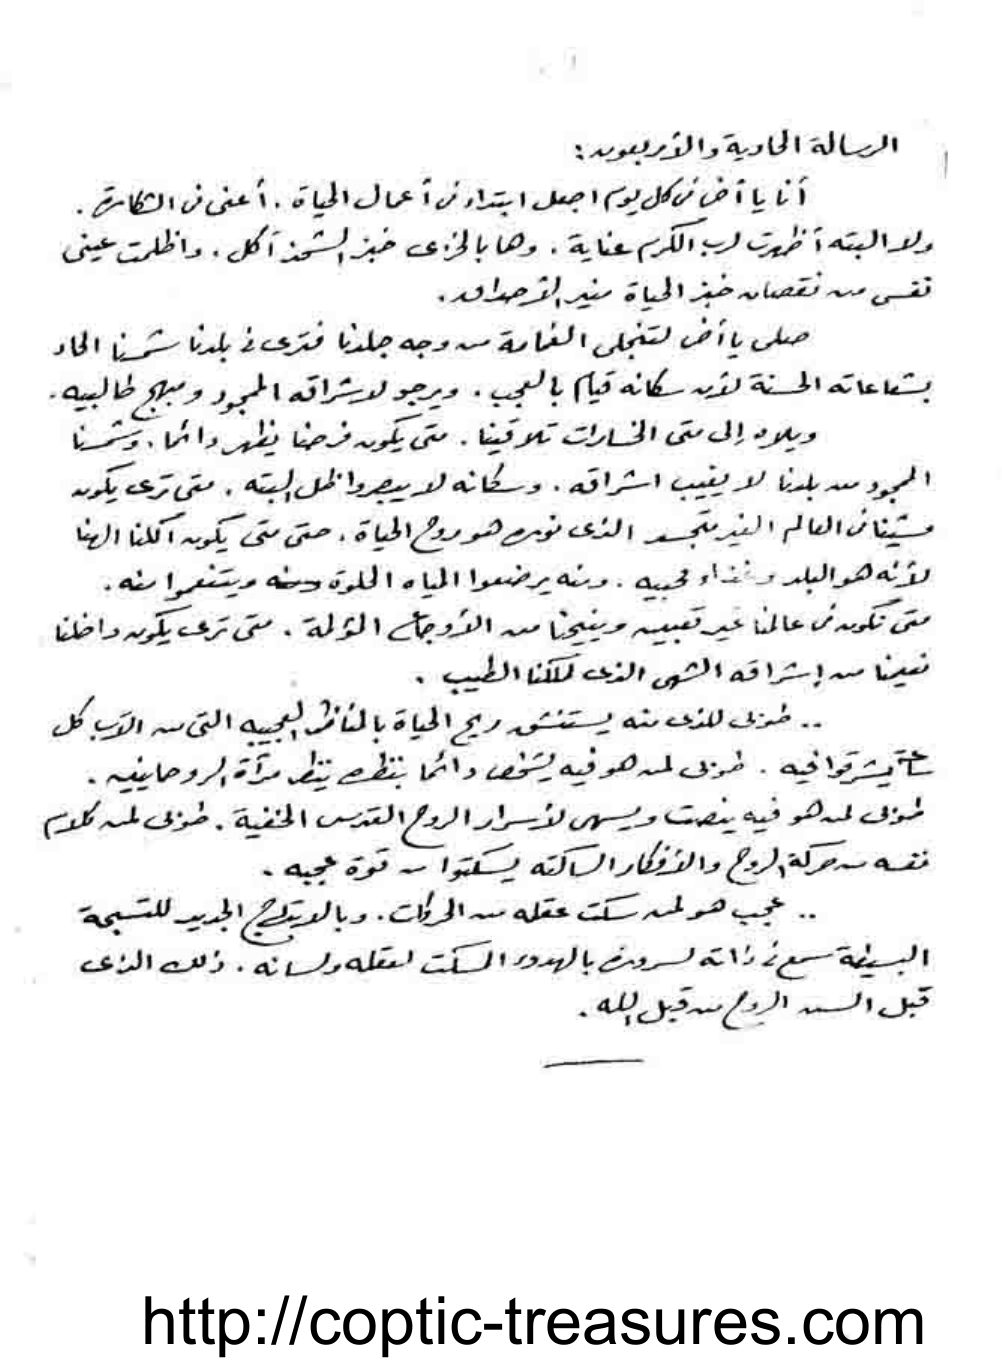 الرسالة الحادية والأربعون :
أنا يا أخى فى كل يوم اجعل ابتداء فى أعمال الحياة . أعنى فى الشكارة .
ولا البته أظهرت لرب الكرم عناية . وها بالخزى خبز الشحذ آكل . واظلمت عينى
نفسى من نقصان خبز الحياة منير الأحداق .
صلى يا أخى لتنجلى الغمامة من وجه جلدنا فترى فى بلدنا شمسنا الحار
بشعاعاته الحسنة لأن سكانه قيام بالعجب . ويرجو لاشراقه الممجود ومبهج طالبيه .
ويلاه إلى متى الخسارات تلاقينا . متى يكون فرحنا يظهر دائما . وشمسنا
الممجود من بلدنا لا يغيب اشراقه . وسكانه لا يبصروا ظل البته . متى ترى يكون
مشينا فى العالم الغير متجسد الذى نوره هو روح الحياة . حتى متى يكون أكلنا الهنا
لأنه هو البلد وغذاء محبيه . ومنه يرضعوا المياه الحلوة ويتنعموا منه .
متى نكون فى عالمنا غير تعبين وينيحنا من الأوجاع المؤلمة . متى ترى يكون داخلنا
نعيمنا من إشراقه الشهى الذى لملكنا الطيب .
.. طوبى للذى منه يستنشق ريح الحياة بالمناظر العجيبه التى من الآب كل
ساعة يشرقوا فيه . طوبى لمن هو فيه يشخص دائما بنظره ينظر مرآة الروحانيين .
طوبى لمن هو فيه ينصت ويسهى لأسرار الروح القدس الخفية . طوبى لمن كلام
نفسه من حركة الروح والأفكار الساكته يسكتوا من قوة عجبه .
.. عجب هو لمن سكت عقله من الحركات . وبالابتلاج الجديد للتسبحة
البسيطة سمع فى ذاته لسروره بالهدوء المسكت لعقله ولسانه . ذلك الذى
قبل السن الروح من قبل الله .
http://coptic-treasures.com